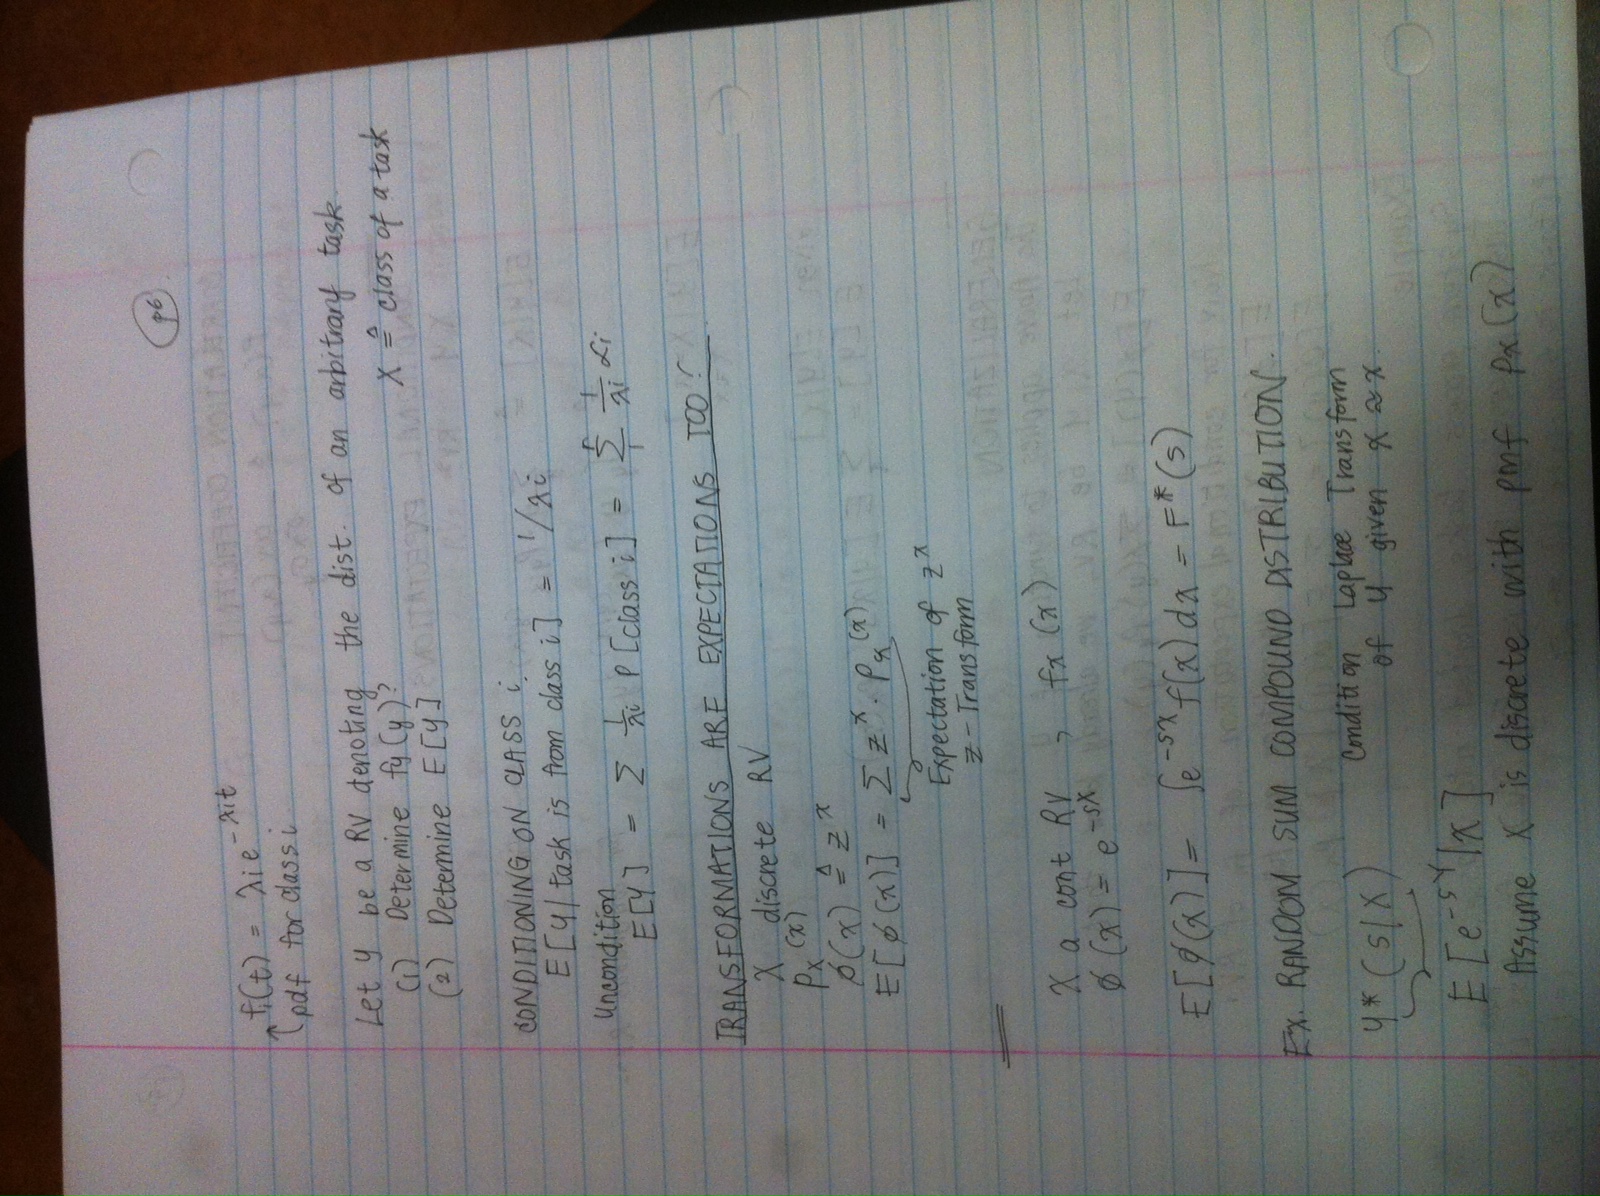 p6
fi(t) = λi e^-λit
pdf for class i
Let y be a RV denoting the dist. of an arbitrary task
(1) Determine fy(y)?
X ≜ class of a task
(2) Determine E[y]
CONDITIONING ON CLASS i
E[y| task is from class i] = 1/λi
Uncondition
E[y] = Σ 1/λi P[class i] = Σ_1^r 1/λi αi
TRANSFORMATIONS ARE EXPECTATIONS TOO!
X discrete RV
Px(x)
ø(x) ≜ z^x
E[ø(x)] = Σ z^x · Px(x)
Expectation of z^x
z-Transform
X a cont RV , fx(x)
ø(x) = e^-sx
E[ø(x)] = ∫e^-sx f(x) dx = F*(s)
Ex. RANDOM SUM COMPOUND DISTRIBUTION.
Condition Laplace Transform
y*(s|X)
of y given x ≈ x
E[e^-sY|x]
Assume X is discrete with pmf px(x)